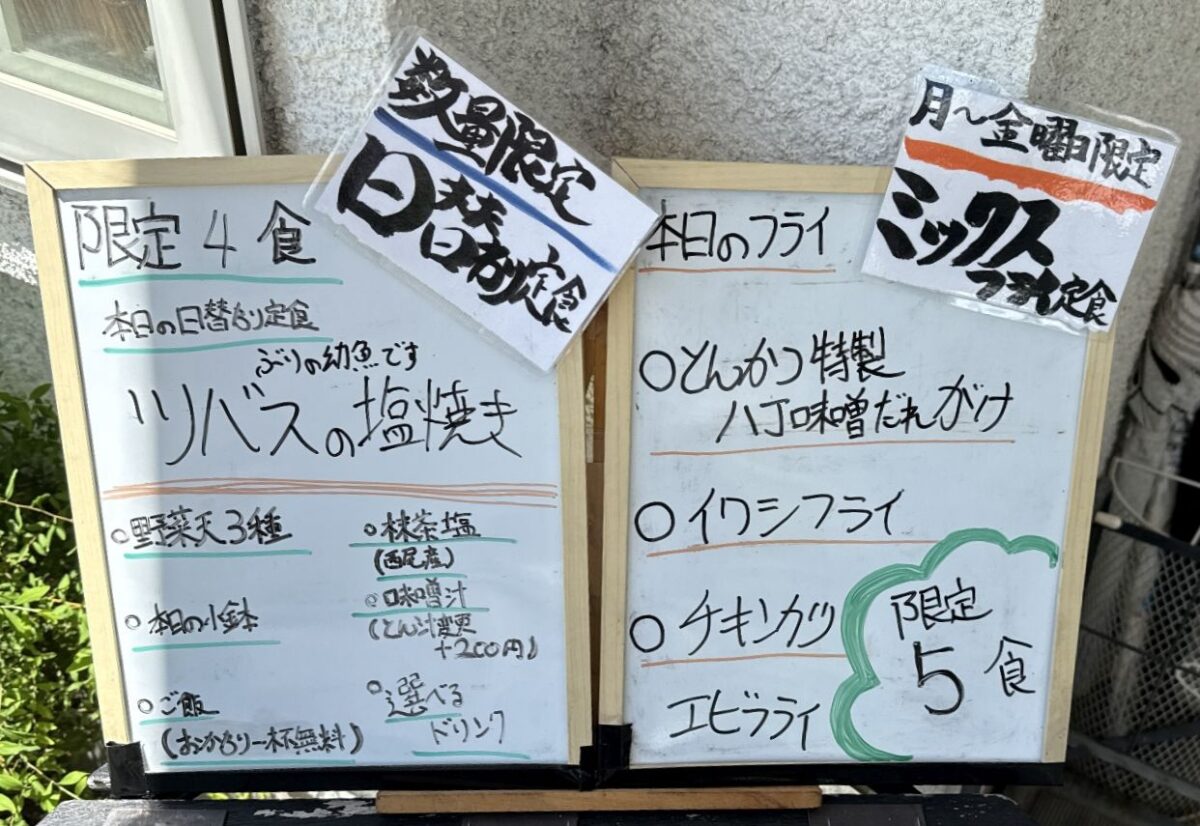 数量限定
日替り定食
限定4食
本日の日替り定食
ぶりの幼魚です
ツバスの塩焼き
○野菜天3種
○本日の小鉢
○ご飯
(おかわり一杯無料)
○抹茶塩
(西尾産)
○味噌汁
(とん汁変更
+200円)
○選べる
ドリンク
月~金曜日限定
ミックス
フライ定食
本日のフライ
○とんかつ特製
八丁味噌だれがけ
○イワシフライ
○チキンカツ
エビフライ
限定
5食